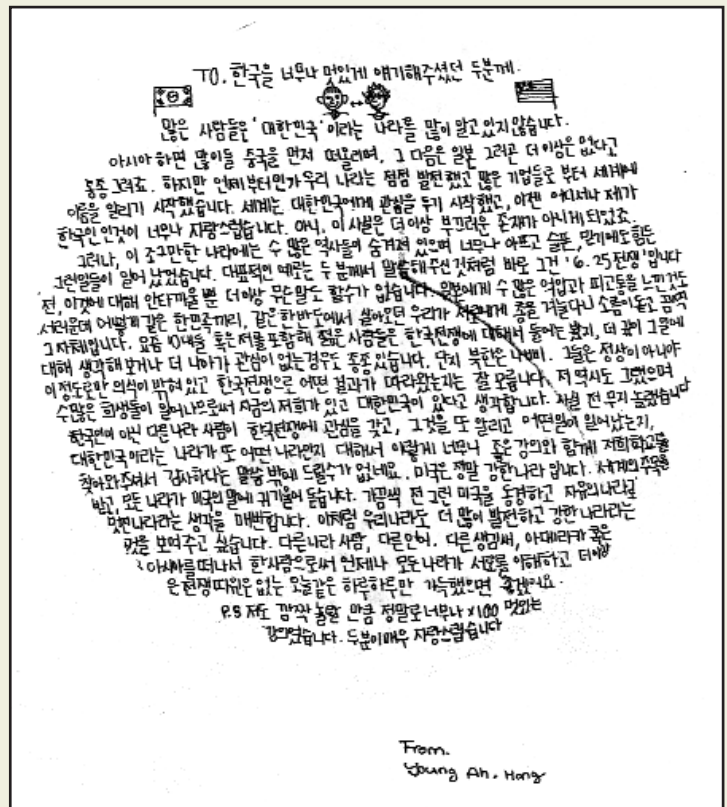 TO. 한국을 너무나 멋있게 얘기해주셨던 두분께.
많은 사람들은 '대한민국' 이라는 나라를 많이 알고 있지 않습니다.
아시아 하면 많이들 중국을 먼저 떠올리며, 그 다음은 일본 그러곤 더이상은 없다고
종종 그러죠. 하지만 언제부터인가 우리 나라는 점점 발전했고 많은 기업들로 부터 세계에
이름을 알리기 시작했습니다. 세계는 대한민국에게 관심을 두기 시작했고, 이젠 어디서나 제가
한국인인것이 너무나 자랑스럽습니다. 아니, 이 사실은 더이상 부끄러운 존재가 아니게 되었죠.
그러나, 이 조그만한 나라에는 수 많은 역사들이 숨겨져 있으며 너무나 아프고 슬픈, 믿기에도 힘든
그런일들이 일어 났었습니다. 대표적인 예로는 두 분께서 말씀해주신것처럼 바로 그건 '6.25전쟁' 입니다
전, 이것에 대해 안타까울 뿐 더이상 무슨말도 할수가 없습니다. 일본에게 수 많은 억압과 피고통을 느낀것도
서러운데 어떻게 같은 한민족끼리, 같은 한반도에서 살아오던 우리가 서로에게 총을 겨눌다니 소름이 돋고 끔찍
그 자체입니다. 요즘 10대들 혹은 저를 포함해 젊은 사람들은 한국전쟁에 대해서 들어는 봤지, 더 깊이 그들에
대해 생각해 보거나 더 나아가 관심이 없는경우도 종종 있습니다. 단지 북한은 나빠. 그들은 정상이 아니야
이 정도로만 의식이 박혀 있고 한국전쟁으로 어떤 결과가 따라왔는지는 잘 모릅니다. 저 역시도 그랬으며
수많은 희생들이 일어나므로써 지금의 저희가 있고 대한민국이 있다고 생각합니다. 사실 전 무지 놀랬습니다
한국인이 아닌 다른나라 사람이 한국전쟁에 관심을 갖고, 그것을 또 알리고 어떤일이 일어났는지,
대한민국이라는 나라가 또 어떤 나라인지 대해서 이렇게 너무나 좋은 강의와 함께 저희학교를
찾아와주셔서 감사하다는 말씀 밖에 드릴수가 없네요. 미국은 정말 강한나라 입니다. 세계의 주목을
받고, 모든 나라가 미국의 말에 귀기울여 듣습니다. 가끔씩 전 그런 미국을 동경하고 자유의나라
멋진나라라는 생각을 매번합니다. 이처럼 우리나라도 더 많이 발전하고 강한 나라라는
것을 보여주고 싶습니다. 다른나라 사람, 다른언어, 다른 생김새, 아메리카 혹은
아시아를 떠나서 한사람으로써 언제나 모든 나라가 서로를 이해하고 더이상
은 전쟁따위은 없는 오늘같은 하루하루만 가득했으면 좋겠어요.
P.S 저도 깜짝 놀랄 만큼 정말로 너무나 x100 멋있는
강의였습니다. 두분이 매우 자랑스럽습니다
From.
Young Ah. Hong